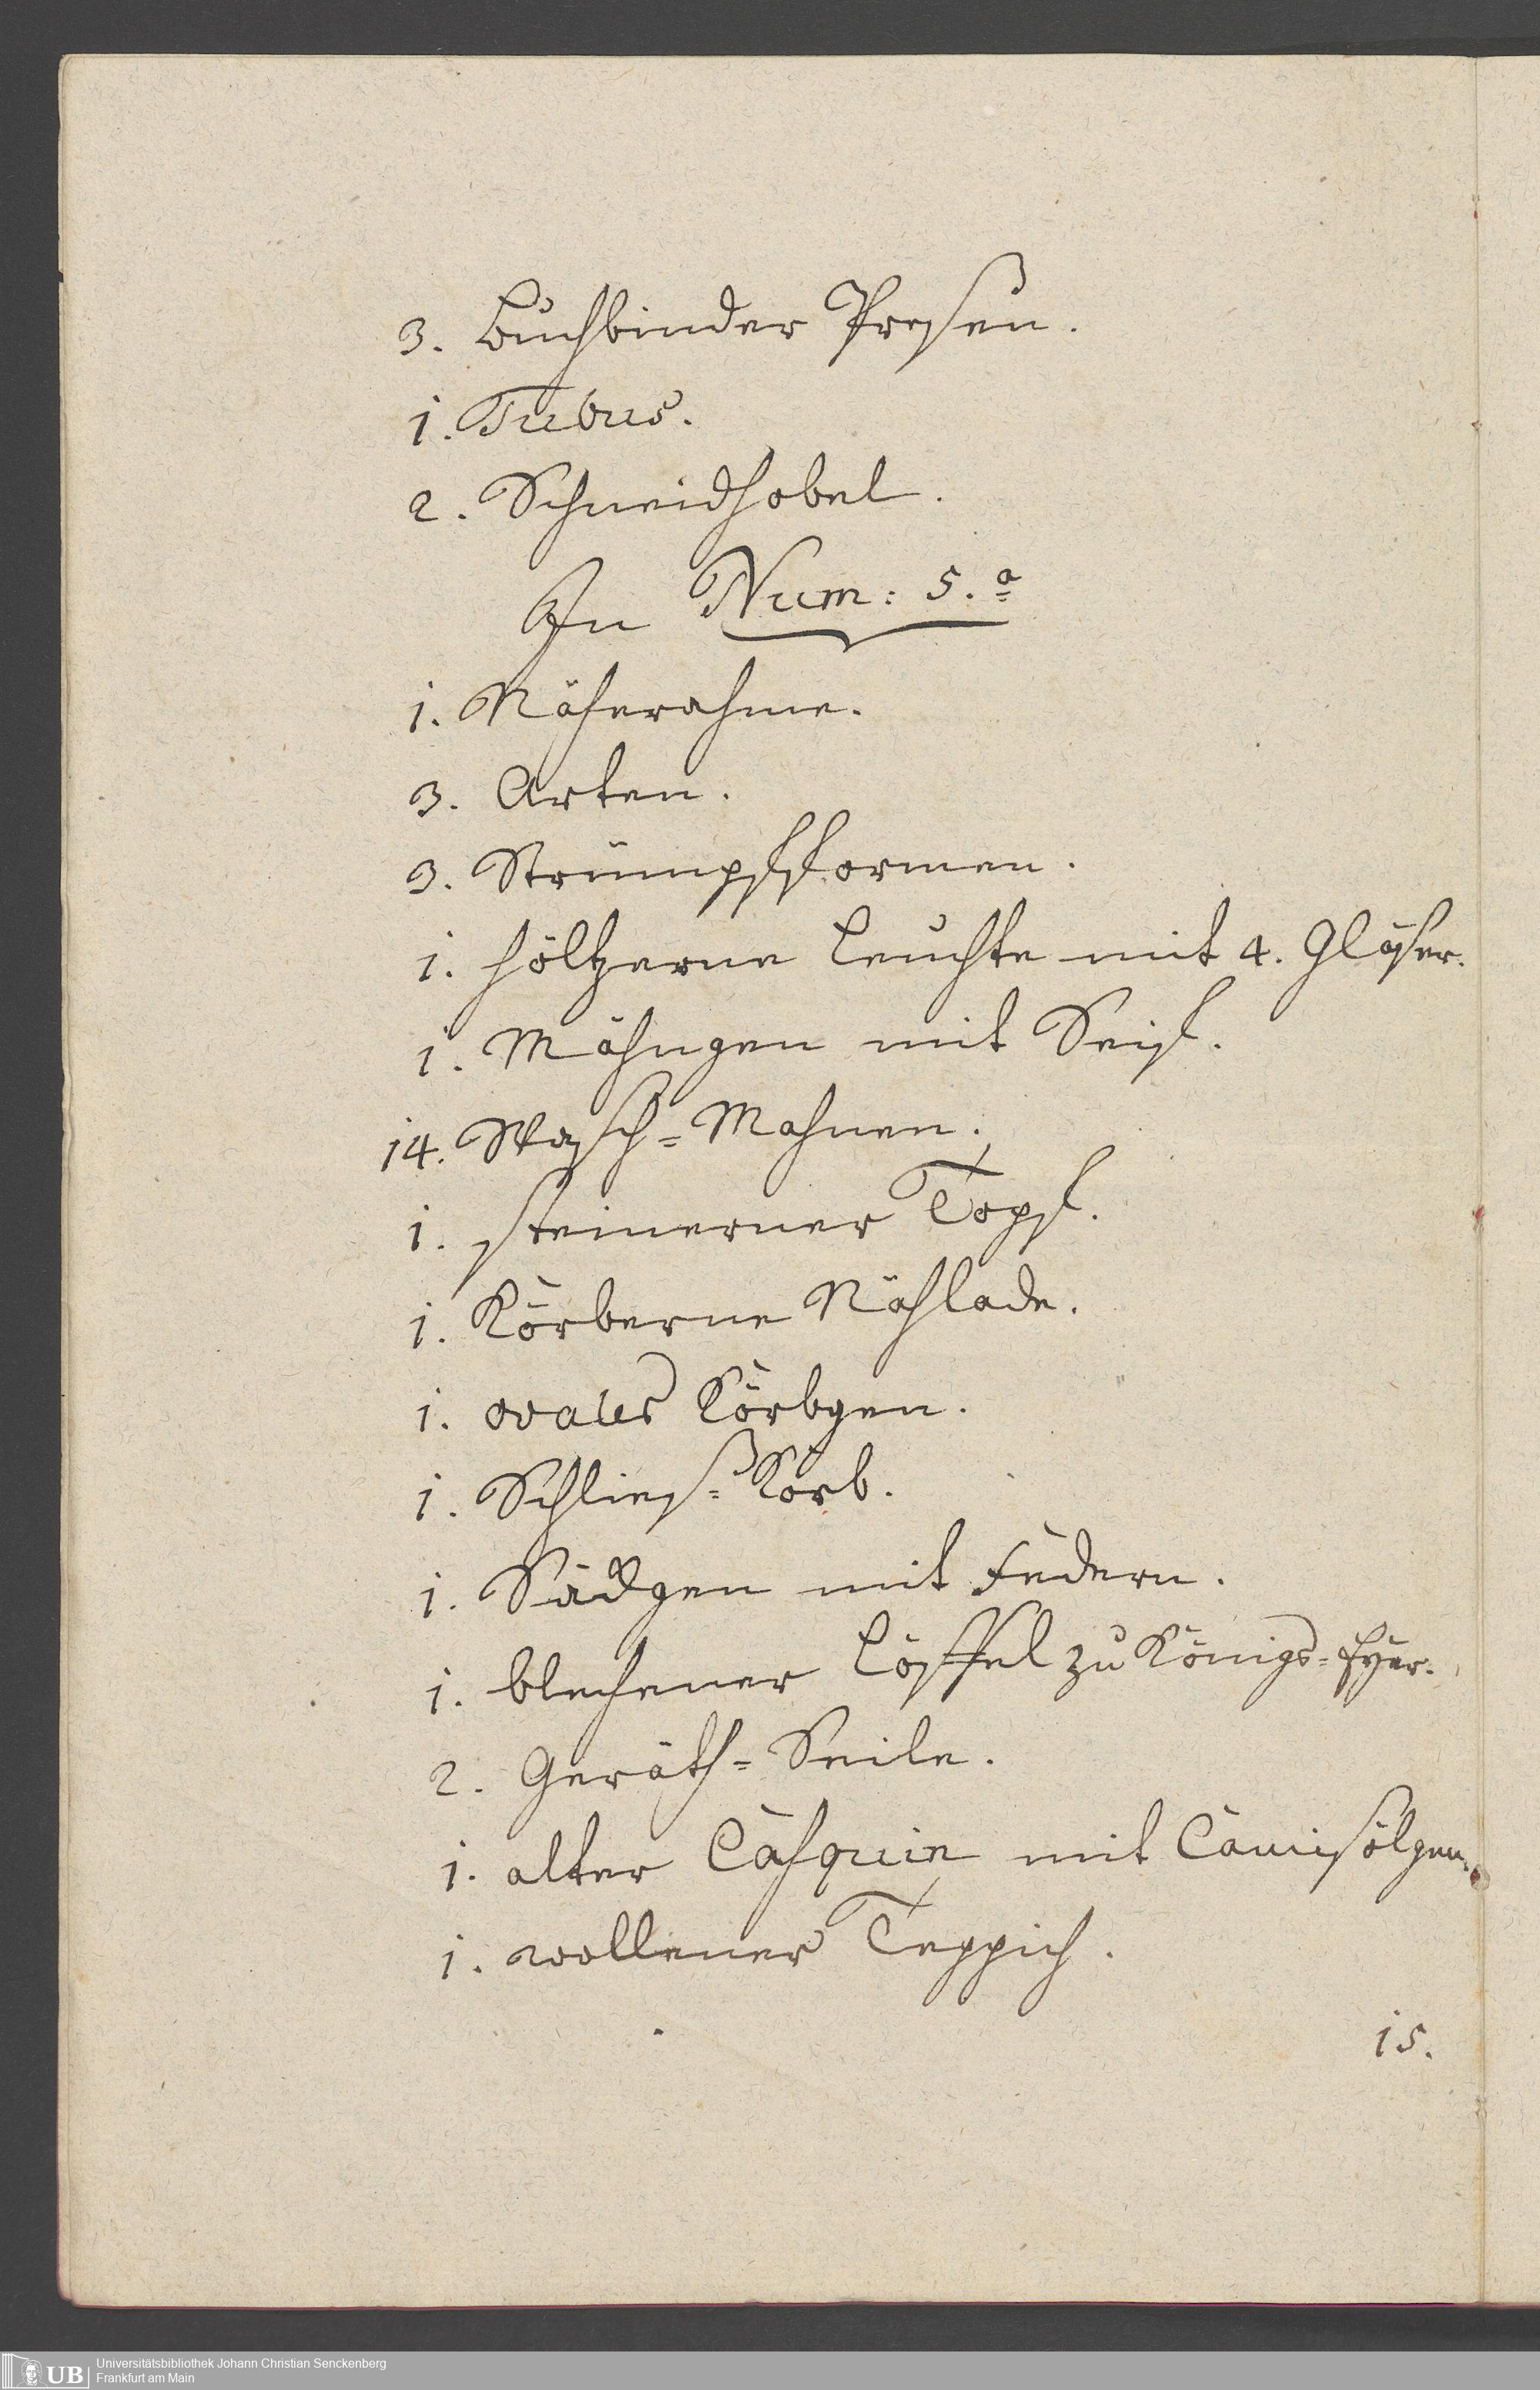 3. Buchbinder Preßen.
1. Tubus.
2. Schneidhobel.
In Num: 5.a
1. Näherahme.
3. Arten.
3. Strümpfformen.
1. höltzerne Leuchte mit 4. Gläser.
1. Mähngen mit Seif.
14. Wasch-Mahnen.
1. steinerner Topf.
1. Körberne Nählade.
1. ovales Körbgen.
1. Schließ-Korb.
1. Säckgen mit Federn.
1. blechener Löffel zu Königs-Eyer.
2. Geräth-Seile.
1. alter Casquin mit Camisölgen.
1. wollener Teppich.
15.
UB Universitätsbibliothek Johann Christian Senckenberg
Frankfurt am Main